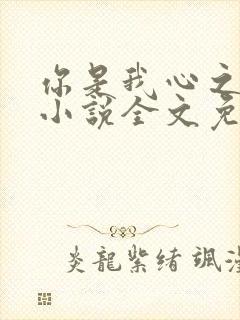 你是我心之
小說全文免
炎龍紫緒颯漫